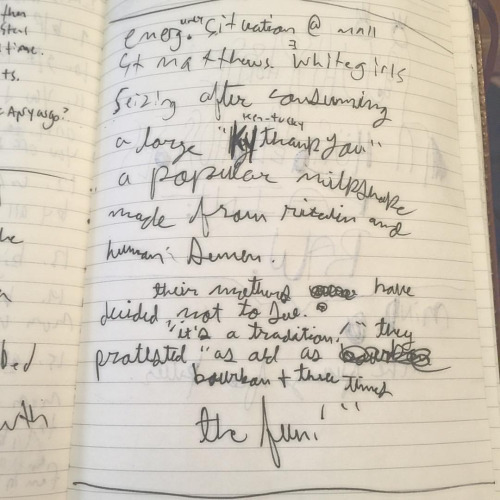 then
time.
ts.
energ. situation @ mall
St Matthews. 3 whitegirls
seizing after consuming
Ken-tucky
a large "Ky thank you"
a popular milkshake
made from ritalin and
human semen.
their mothers have
decided not to sue.
"it's a tradition," they
protested "as old as
bourbon + three times
the fun!"
bed
with